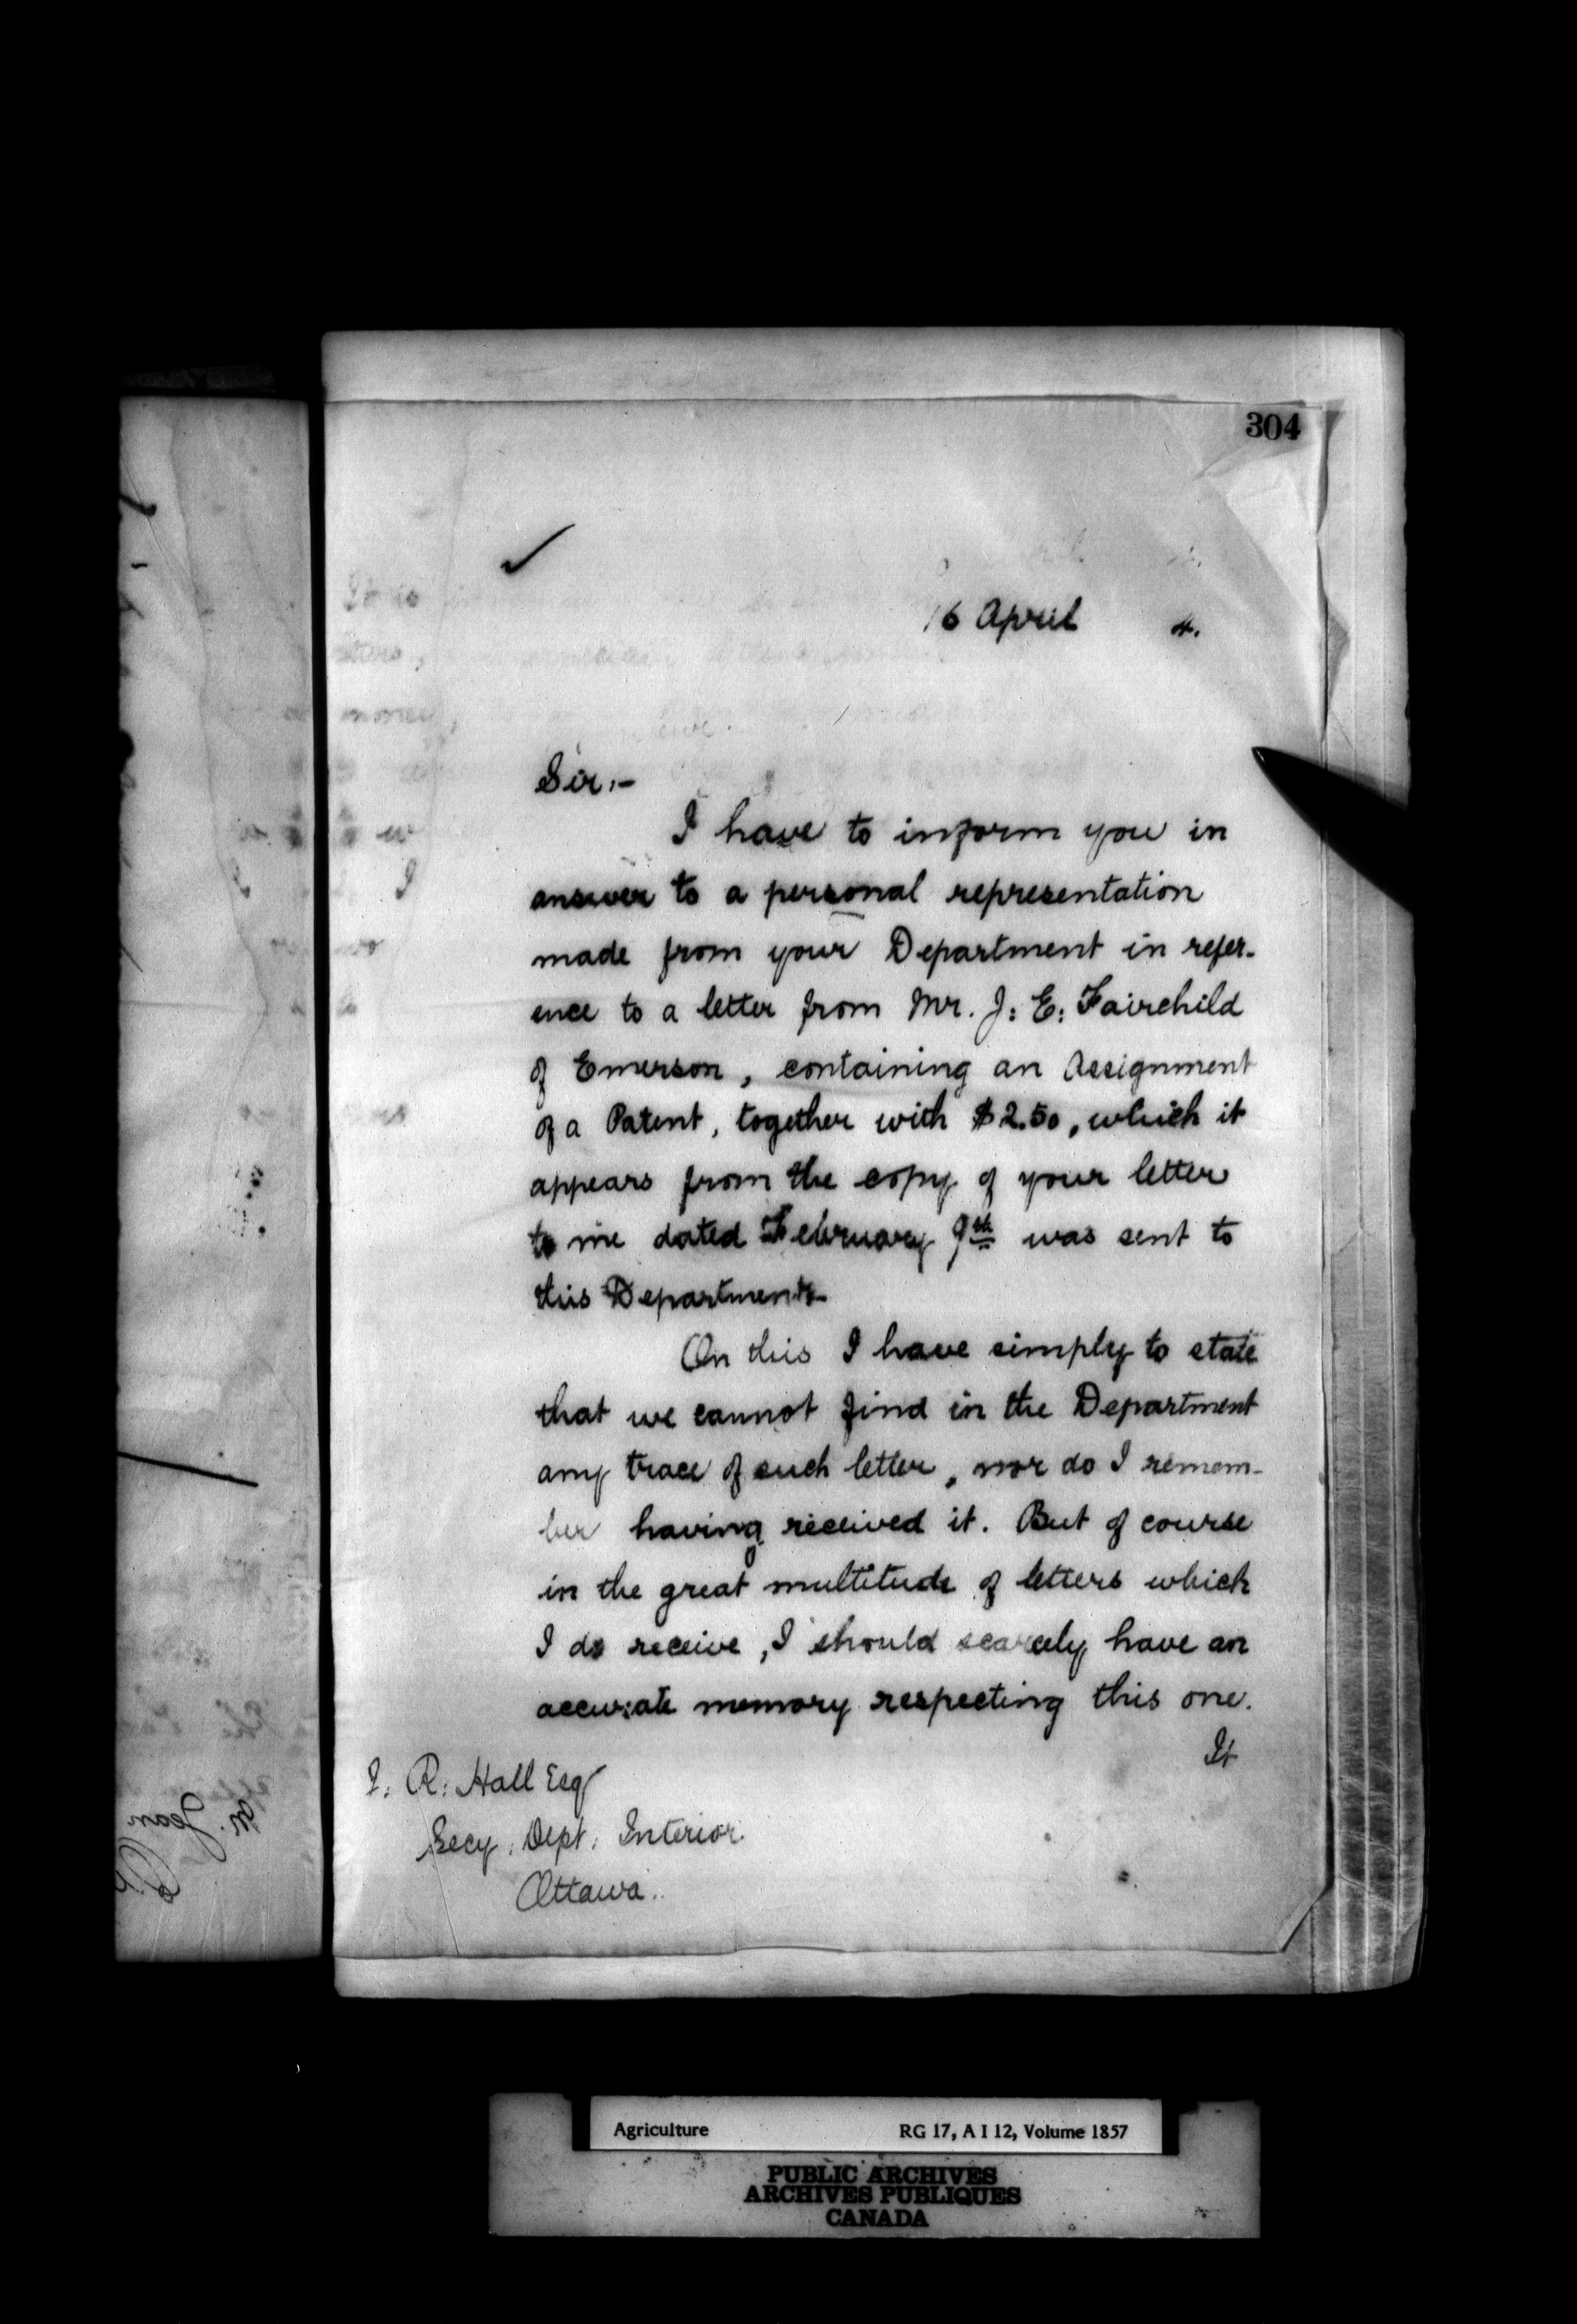 304
16 April 4.
Sir:-
I have to inform you in
answer to a personal representation
made from your Department in refer-
ence to a letter from Mr. J: E: Fairchild
of Emerson, containing an Assignment
of a Patent, together with $2.50, which it
appears from the copy of your letter
to me dated February 9th was sent to
this Department.
On this I have simply to state
that we cannot find in the Department
any trace of such letter, nor do I remem-
ber having received it. But of course
in the great multitude of letters which
I do receive, I should scarcely have an
accurate memory respecting this one.
It
J. R: Hall Esq
Secy. Dept. Interior
Ottawa.
Agriculture RG 17, A I 12, Volume 1857
PUBLIC ARCHIVES
ARCHIVES PUBLIQUES
CANADA